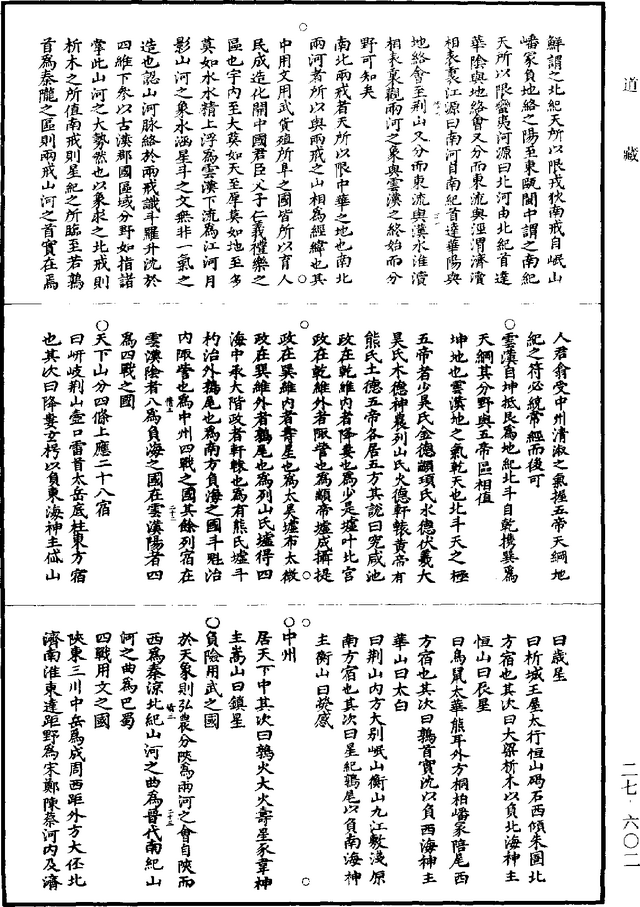 道藏
鮮謂之北紀天所以限戎狄南戒自岷山
嶓冢負地絡之陽至東甌閩中謂之南紀
天所以限蠻夷河源曰北河由北紀首達
華陰與地絡會又分而東流與涇渭濟瀆
相表裏江源曰南河自南紀首達華陽與
地絡會至荆山又分而東流與漢水淮瀆
相表裏觀兩河之象與雲漢之終始而分
野可知矣
南北兩戒者天所以限中華之地也南北
兩河者所以與兩戒之山相爲經緯也其
中用文用武貨殖所阜之國皆所以育人
民成造化開中國君臣父子仁義禮樂之
區也宇内至大莫如天至厚莫如地至多
莫如水水精上浮爲雲漢下流爲江河月
影山河之象水涵星斗之文無非一氣之
造也認山河脉絡於兩戒識斗羅升沈於
四維下參以古漢郡國區域分野如指諸
掌此山河之大勢然也以象求之北戒則
析木之所值南戒則星紀之所臨至若鶉
首爲秦隴之區則兩戒山河之首實在焉
人君翕受中州清淑之氣握五帝天綱地
紀之符必統常經而後可
○雲漢自坤抵艮爲地紀北斗自乾携巽爲
天綱其分野與五帝區相值
坤地也雲漢地之氣乾天也北斗天之極
五帝者少昊氏金德顓頊氏水德伏羲大
昊氏木德神農列山氏火德軒轅黄帝有
熊氏土德五帝各居五方其説曰究咸池
政在乾維内者降婁也爲少昊墟叶北宫
政在乾維外者陬訾也爲顓帝墟成攝提
政在巽維内者壽星也爲太昊墟布太微
政在巽維外者鶉尾也爲列山氏墟得四
海中承大階政者軒轅也爲有熊氏墟斗
杓治外鶉尾也爲南方負海之國斗魁治
内陬訾也爲中州四戰之國其餘列宿在
雲漢陰者八爲負海之國在雲漢陽者四
爲四戰之國
○天下山分四條上應二十八宿
曰岍岐荆山壺口雷首太岳底柱東方宿
也其次曰降婁玄枵以負東海神主岱山
曰歲星
曰析城王屋太行恒山碣石西傾朱圉北
方宿也其次曰大梁析木以負北海神主
恒山曰辰星
曰鳥鼠太華熊耳外方桐柏嶓冢陪尾西
方宿也其次曰鶉首實沈以負西海神主
華山曰太白
曰荆山内方大别岷山衡山九江敷淺原
南方宿也其次曰星紀鶉尾以負南海神
主衡山曰熒惑
○中州
居天下中其次曰鶉火大火壽星豕韋神
主嵩山曰鎮星
○負險用武之國
於天象則弘農分陝爲兩河之會自陝而
西爲秦涼北紀山河之曲爲晉代南紀山
河之曲爲巴蜀
四戰用文之國
陝東三川中岳爲成周西距外方大伾北
濟南淮東達距野爲宋鄭陳蔡河内及濟
二七·六〇二